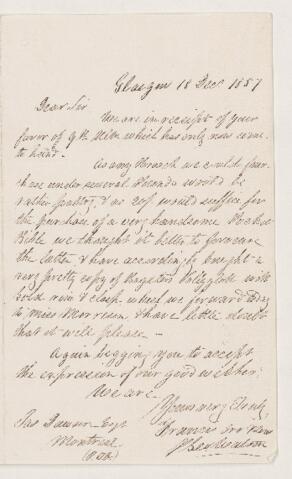 Glasgow 18 Decr 1857
Dear Sir
We are in receipt of your
favor of 9th Ulto which has only now come
to hand.
As any Broach we could pur-
chase under several Pounds would be
rather paltry, & as 20/ would suffice for
the purchase of a very handsome Pocket
Bible we thought it better to forswear
the latter & have accordingly bought a
very pretty copy of Bagsters Polyglott with
gold rim & clasp which we forward today
to Miss Morrison & have little doubt
that it will please. —
Again begging you to accept
the expression of our good wishes,
We are
Yours very truly,
Francis Orr & Sons
Jas Dawson Esqr
Montreal